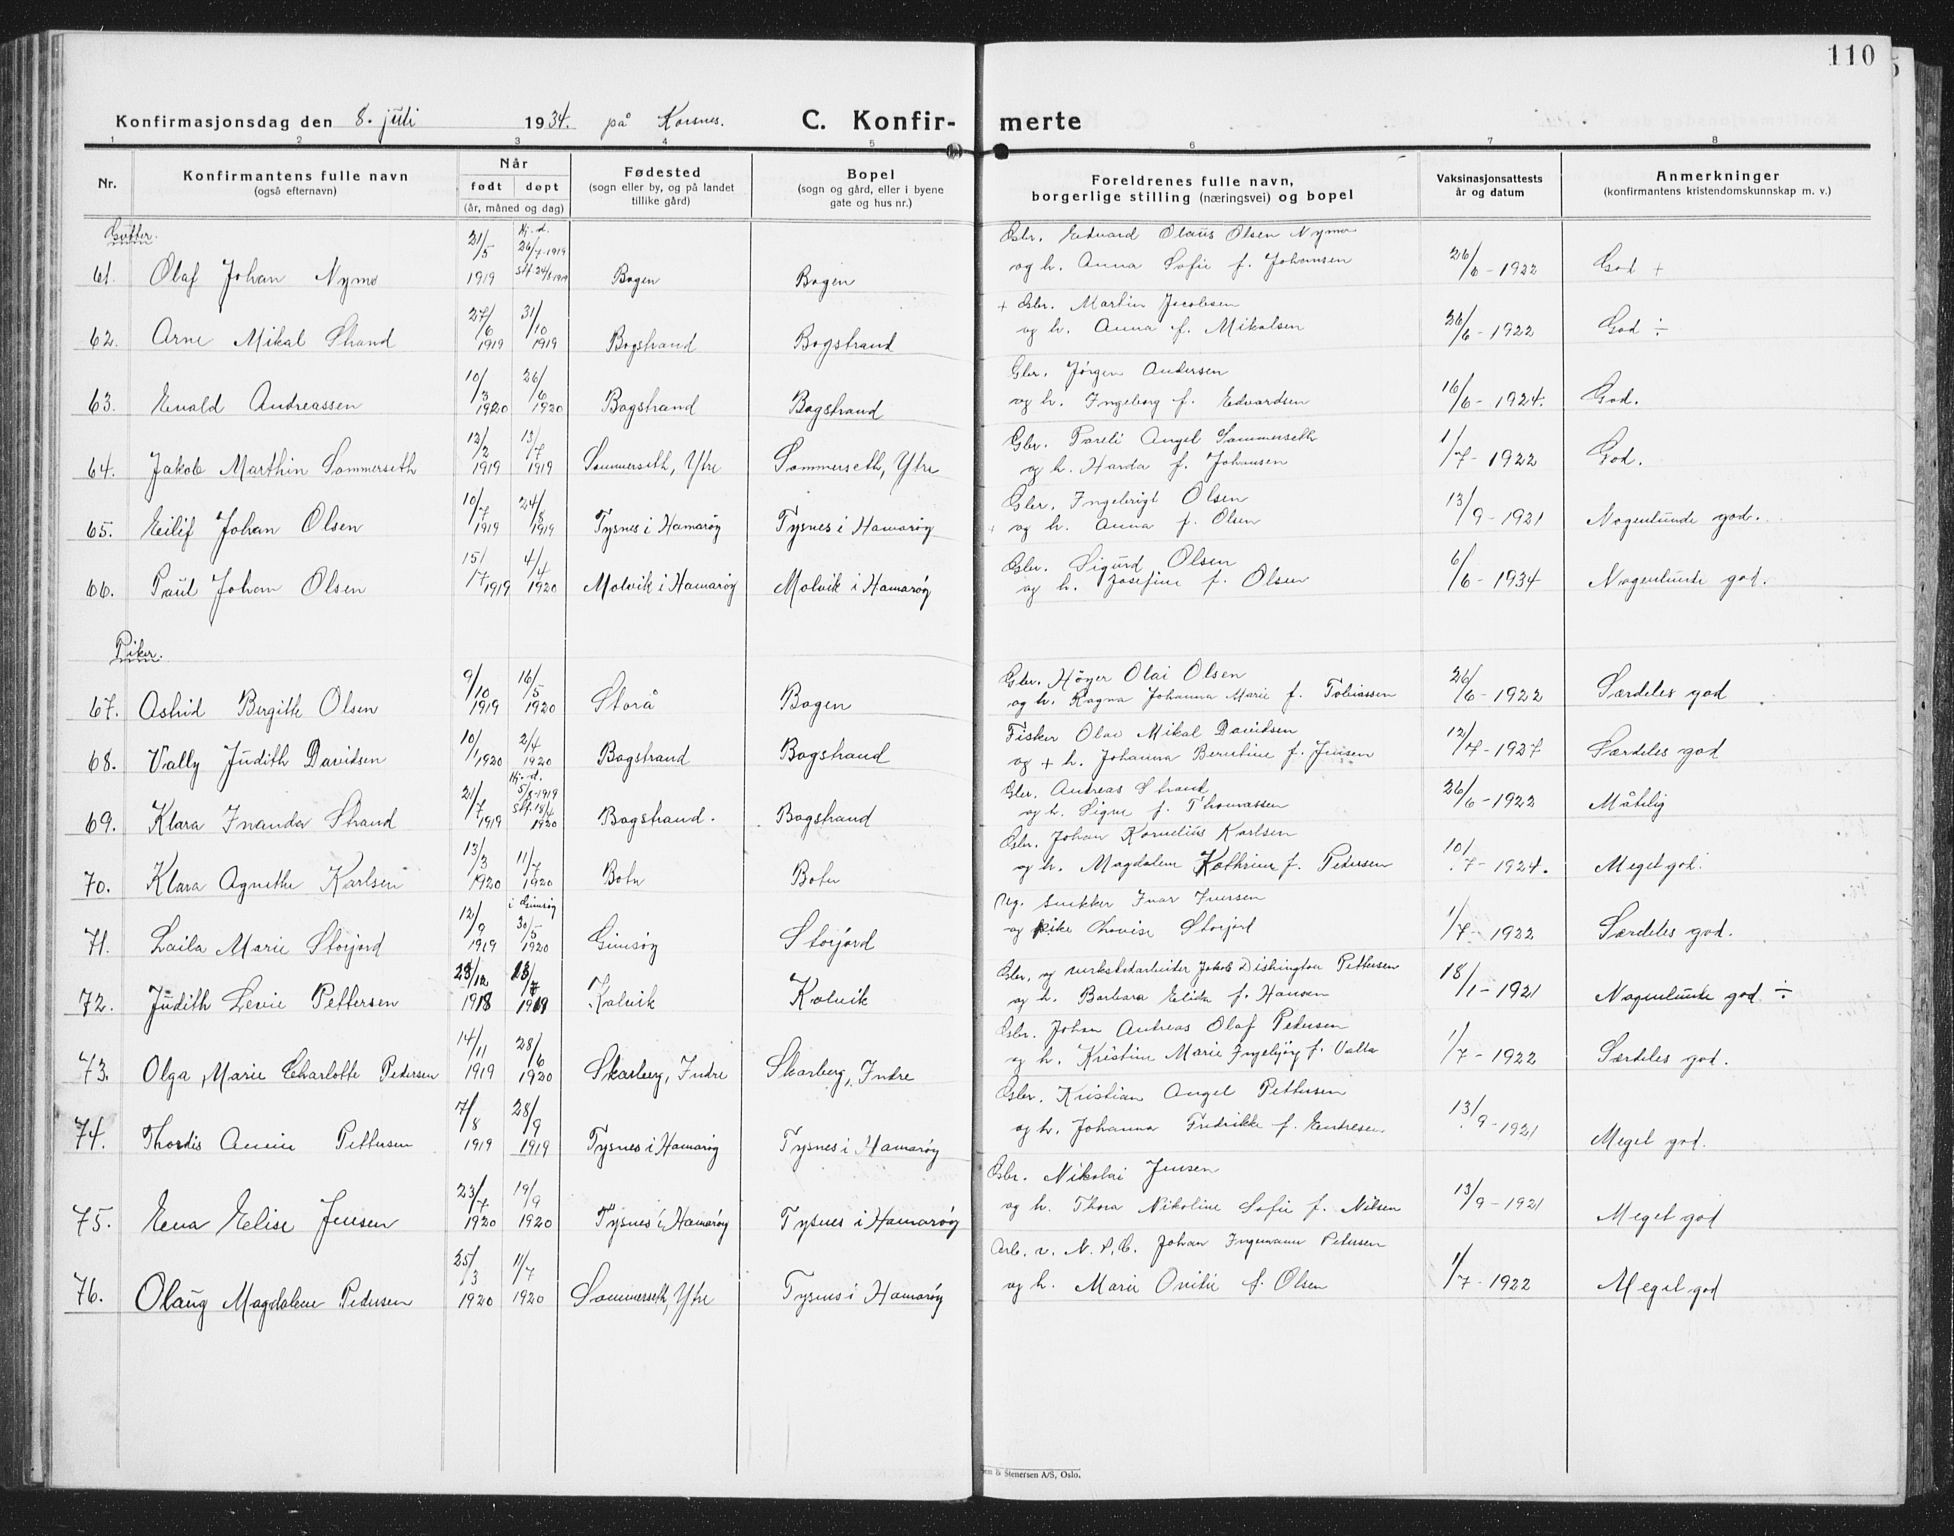 110
Konfirmasjonsdag den 8. juli 1934. på Korsnes. C. Konfir- merte
1 2 3 4 5 6 7 8
Nr. Konfirmantens fulle navn (også efternavn) Når født døpt (år, måned og dag) Fødested (sogn eller by, og på landet tillike gård) Bopel (sogn og gård, eller i byene gate og hus nr.) Foreldrenes fulle navn, borgerlige stilling (næringsvei) og bopel Vaksinasjonsattests år og datum Anmerkninger (konfirmantens kristendomskunnskap m. v.)
Gutter.
61. Olaf Johan Nymo 21/5 1919 Hj. d. 26/7-1919 Stf. 24/8 1919 Bogen Bogen Gbr. Edvard Olaus Olsen Nymo
og h. Anna Sofie f. Johansen 26/6-1922 God +
62. Arne Mikal Strand 27/6 1919 31/10 1919 Bogstrand Bogstrand + Gbr. Martin Jacobsen
og h. Anna f. Mikalsen 26/6-1922 God ÷
63. Evald Andreassen 10/3 1920 26/6 1920 Bogstrand Bogstrand Gbr. Jørgen Andersen
og h. Ingeborg f. Edvardsen 16/6-1924. God.
64. Jakob Marthin Sommerseth 12/2 1919 13/7 1919 Sommerseth, Ytre Sommerseth, Ytre Gbr. Pareli Angel Sommerseth
og h. Harda f. Johansen 1/7-1922 God.
65. Eilif Johan Olsen 10/7 1919 24/8 1919 Tysnes i Hamarøy Tysnes i Hamarøy Gbr. Ingebrigt Olsen
+ og h. Anna f. Olsen 13/9-1921 Nogenlunde god.
66. Paul Johan Olsen 15/7 1919 4/4 1920 Molvik i Hamarøy Molvik i Hamarøy Gbr. Sigurd Olsen
og h. Josefine f. Olsen 6/6-1934 Nogenlunde god.
Piker.
67. Astrid Bergitte Olsen 9/10 1919 16/5 1920 Storå Bogen Gbr. Höger Olai Olsen
og h. Ragna Johanna Marie f. Tobiassen 26/6-1922 Særdeles god
68. Vally Judith Davidsen 10/1 1920 2/4 1920 Bogstrand Bogstrand Fisker Olav Mikal Davidsen
og + h. Johanna Berntine f. Jensen 12/7-1927 Særdeles god
69. Klara Inanda Strand 21/7 1919 Hj. d. 5/8-1919 Stf. 18/4 1920 Bogstrand. Bogstrand Gbr. Andreas Strand
og h. Signe f. Thomassen 26/6-1922 Måtelig
70. Klara Agnethe Karlsen 13/3 1920 11/7 1920 Botn Botn Gbr. Johan Kornelius Karlsen
og h. Magdalene Kathrine f. Pedersen 10/7-1924. Meget god.
71. Laila Marie Storjord 12/9 1919 i Gimsøy 30/5 1920 Gimsøy Storjord Ug. snekker Ivar Iversen
og pike Lovise Storjord 1/7-1922 Særdeles god.
72. Judith Levie Pettersen 23/12 1918 13/7 1919 Kalvik Kalvik Gbr. og verkstedarbeider Jakob Dishington Pettersen
og h. Barbara Elida f. Hansen 18/1-1921 Nogenlunde god ÷
73. Olga Marie Charlotte Pedersen 14/11 1919 28/6 1920 Skarberg, Indre Skarberg, Indre Gbr. Johan Andreas Olaf Pedersen
og h. Kristine Marie Ingebjörg f. Valla 1/7-1922 Særdeles god.
74. Thordis Annie Pettersen 7/8 1919 28/9 1919 Tysnes i Hamarøy Tysnes i Hamarøy Gbr. Kristian Angel Pettersen
og h. Johanna Fredrikke f. Endresen 13/9-1921 Meget god.
75. Erna Elise Jensen 23/7 1920 19/9 1920 Tysnes i Hamarøy Tysnes i Hamarøy Gbr. Nikolai Jensen
og h. Thora Nikoline Sofie f. Nilsen 13/9-1921 Meget god
76. Olaug Magdalene Pedersen 25/3 1920 11/7 1920 Sommerseth, Ytre Tysnes i Hamarøy Arb. v. N.P.C. Johan Ingemann Petersen
og h. Marie Ovidie f. Olsen 1/7-1922 Meget god
& Stenersen A/S, Oslo.